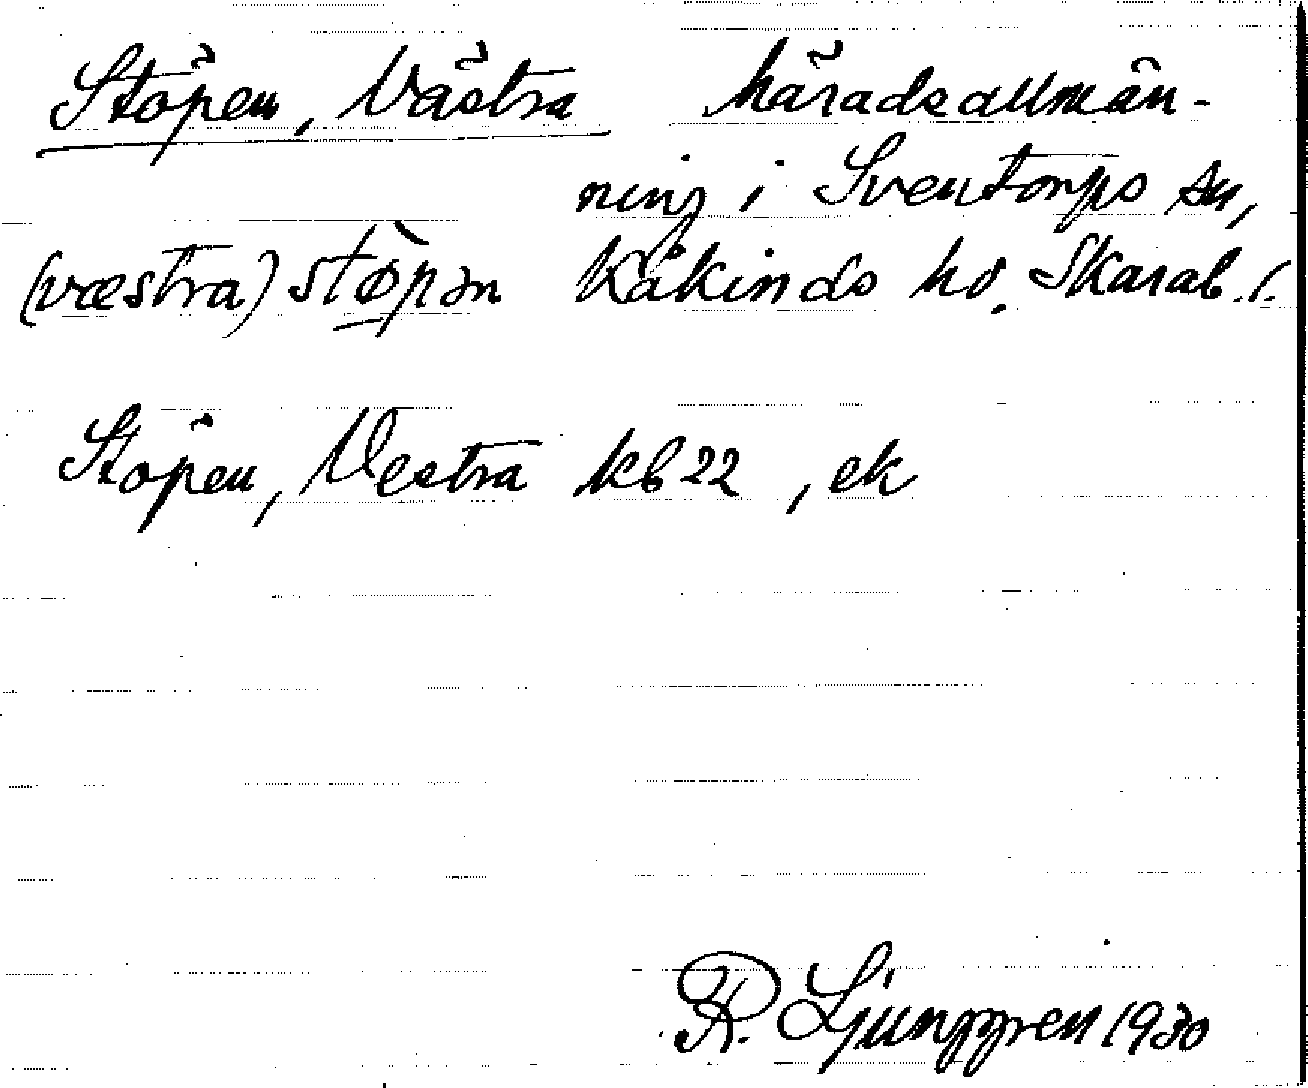 Stöpen, Västra häradsallmän-
ning i Sventorps sn,
(væstra) støpən Kåkinds hd. Skarab. l.
Stöpen, Vestra kb 22, ek
R. Ljunggren 1930